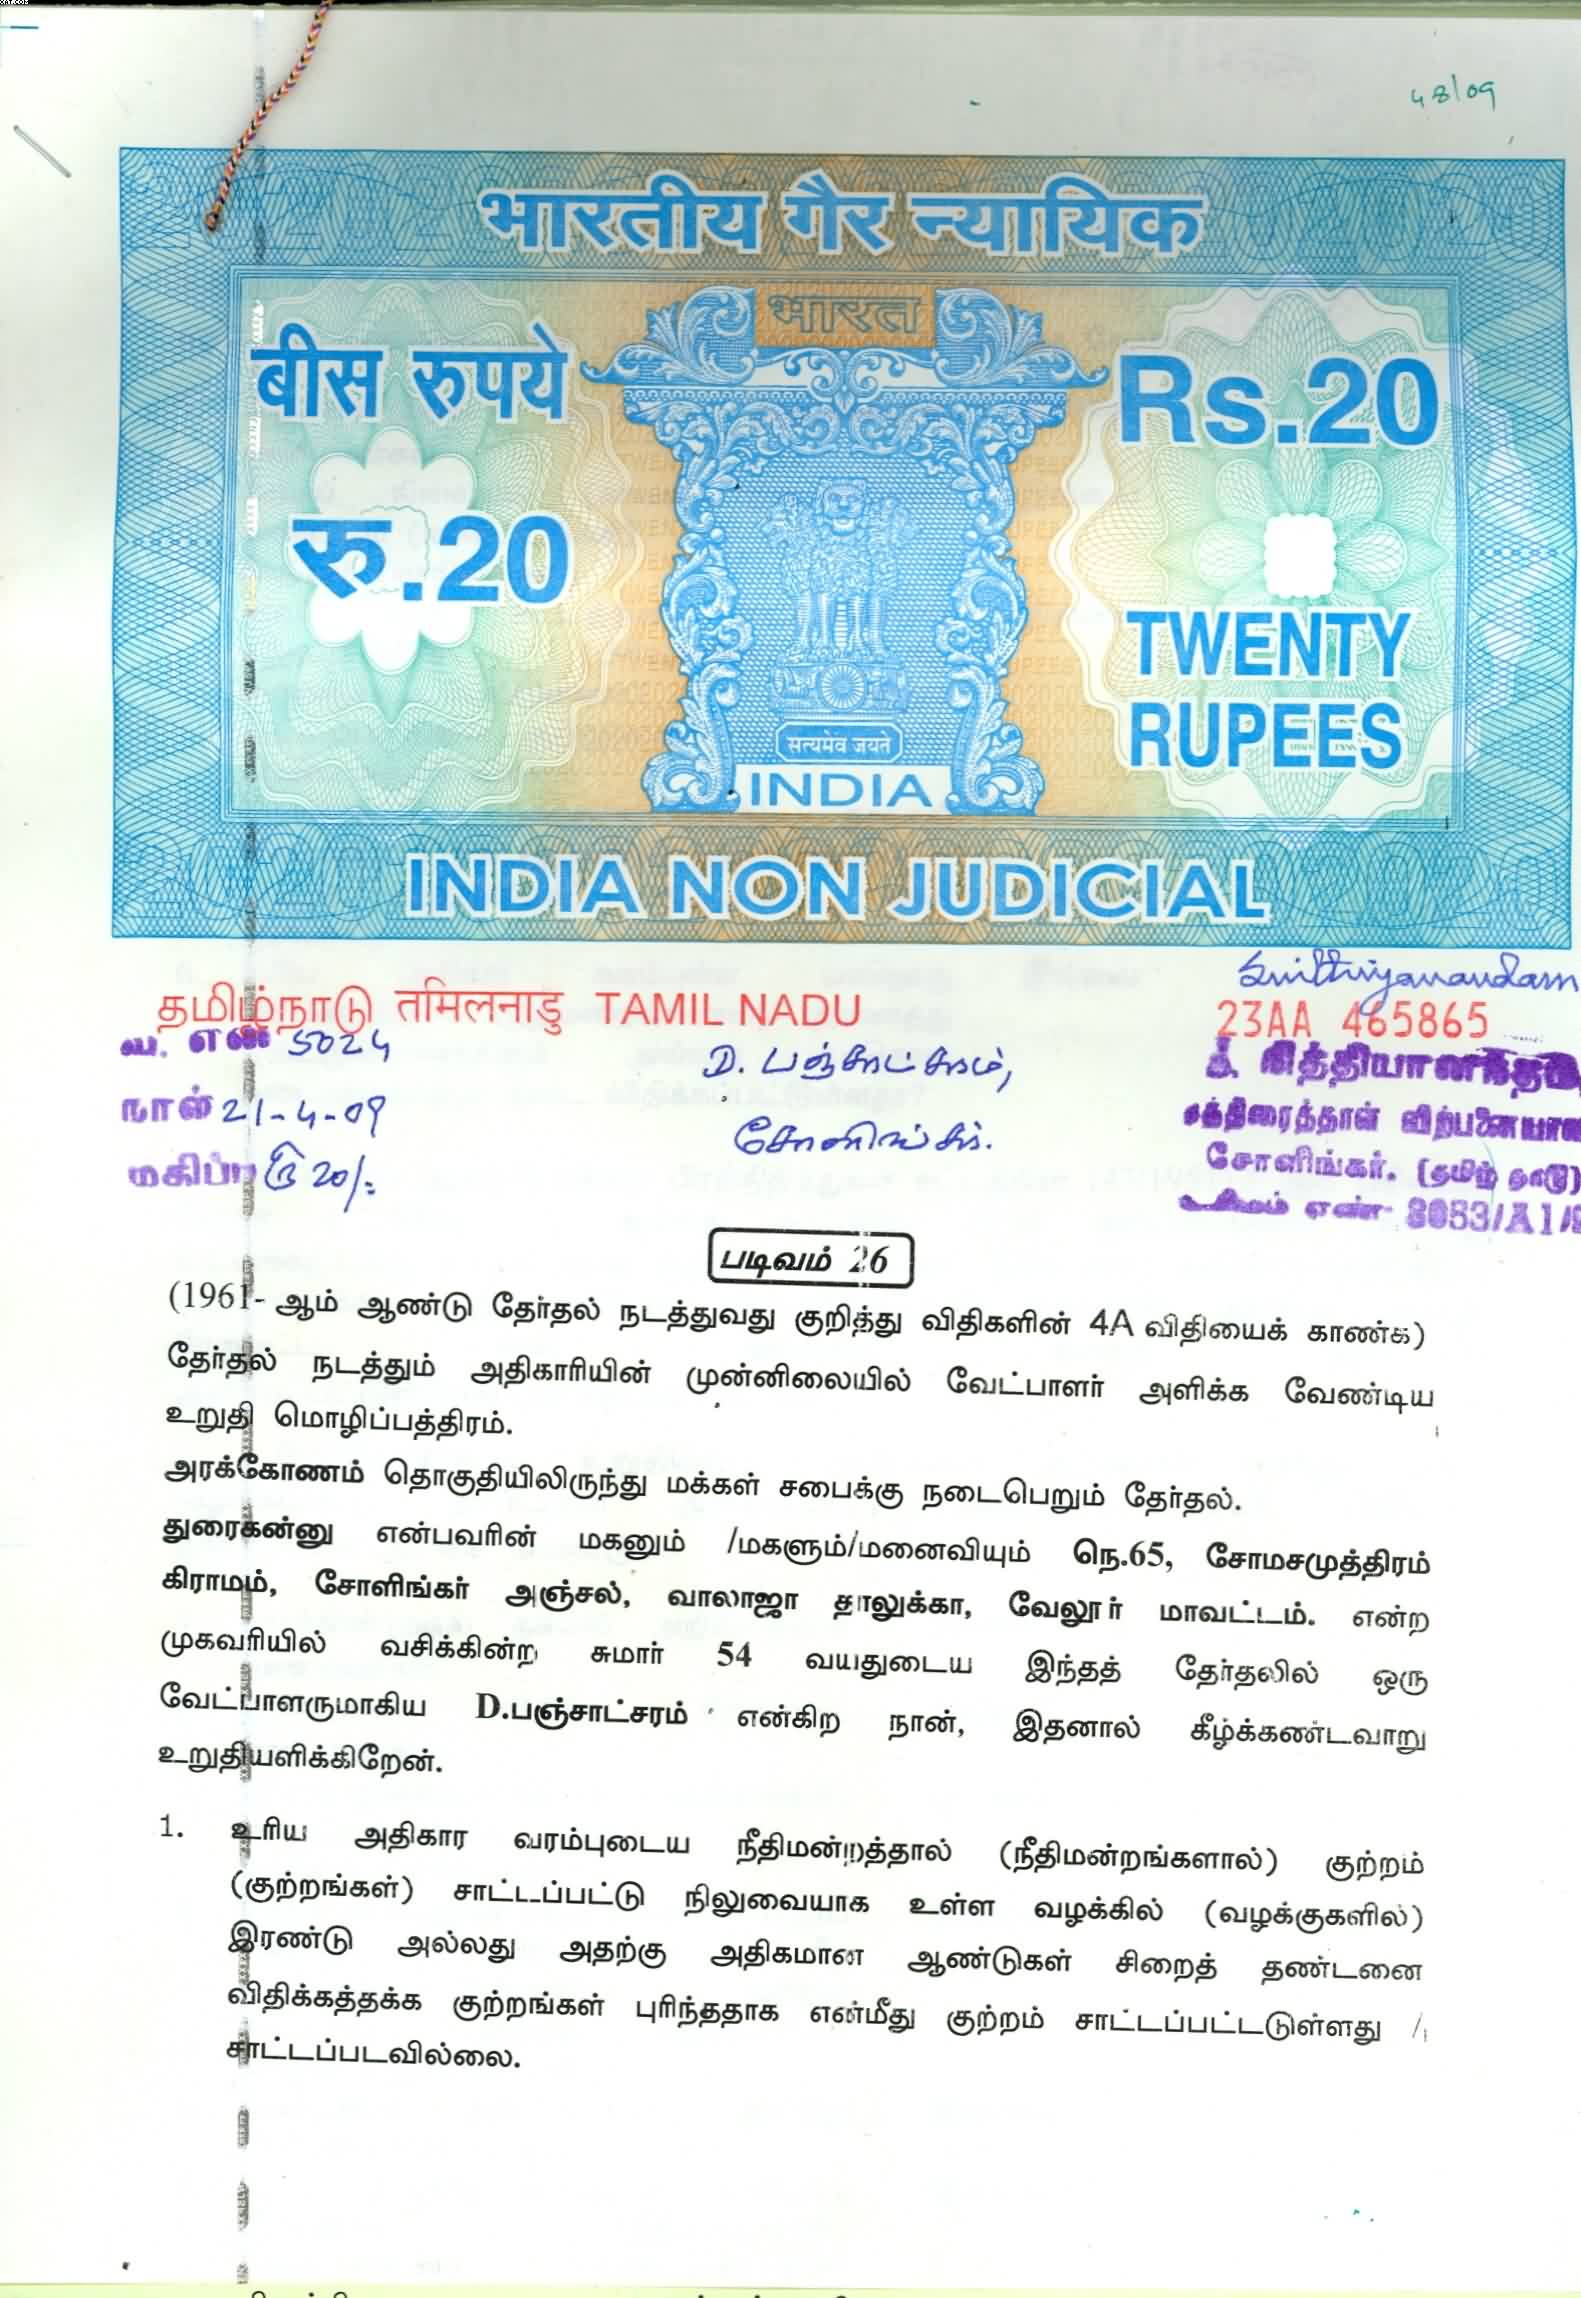 48/09
भारतीय गैर न्यायिक
भारत
बीस रुपये
Rs.20
रु.20
TWENTY
RUPEES
सत्यमेव जयते
INDIA
INDIA NON JUDICIAL
தமிழ்நாடு तमिलनाडु TAMIL NADU
23AA 465865
வ. எண் 5024
நாள் 21-4-09
மகிப்பு ரூ 20/-
D. பஞ்சாட்சரம்,
சோளிங்கர்.
நித்தியானந்தம்
சோளிங்கர். (தமிழ் நாடு)
படிவம் 26
(1961- ஆம் ஆண்டு தேர்தல் நடத்துவது குறித்து விதிகளின் 4A விதியைக் காண்க)
தேர்தல் நடத்தும் அதிகாரியின் முன்னிலையில் வேட்பாளர் அளிக்க வேண்டிய
உறுதி மொழிப்பத்திரம்.
அரக்கோணம் தொகுதியிலிருந்து மக்கள் சபைக்கு நடைபெறும் தேர்தல்.
துரைகன்னு என்பவரின் மகனும் /மகளும்/மனைவியும் நெ.65, சோமசமுத்திரம்
கிராமம், சோளிங்கர் அஞ்சல், வாலாஜா தாலுக்கா, வேலூர் மாவட்டம். என்ற
முகவரியில் வசிக்கின்ற சுமார் 54 வயதுடைய இந்தத் தேர்தலில் ஒரு
வேட்பாளருமாகிய D.பஞ்சாட்சரம் என்கிற நான், இதனால் கீழ்க்கண்டவாறு
உறுதியளிக்கிறேன்.
1. உரிய அதிகார வரம்புடைய நீதிமன்றத்தால் (நீதிமன்றங்களால்) குற்றம்
(குற்றங்கள்) சாட்டப்பட்டு நிலுவையாக உள்ள வழக்கில் (வழக்குகளில்)
இரண்டு அல்லது அதற்கு அதிகமான ஆண்டுகள் சிறைத் தண்டனை
விதிக்கத்தக்க குற்றங்கள் புரிந்ததாக என்மீது குற்றம் சாட்டப்பட்டடுள்ளது /
சாட்டப்படவில்லை.